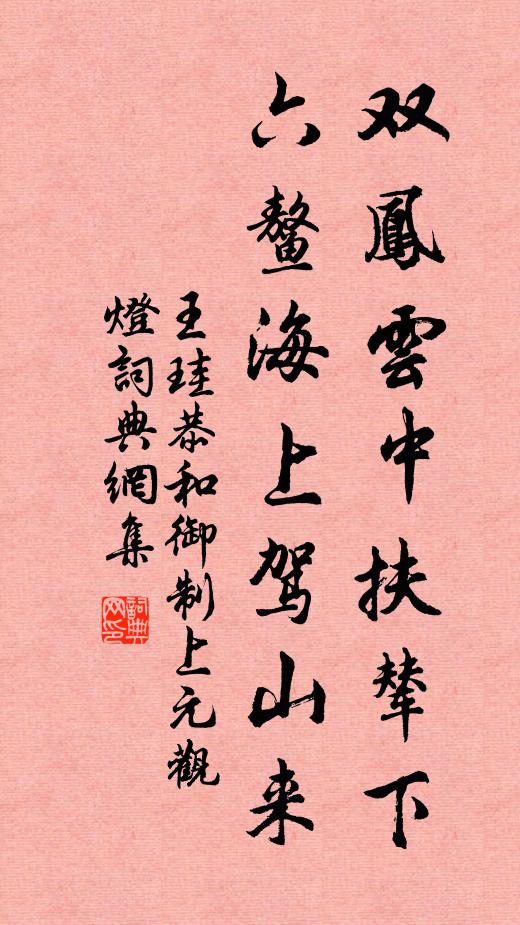 双鳳雲中扶輦下
六鳌海上驾山来
王珪恭和御制上元觀
燈詞典網集
詞典
网印